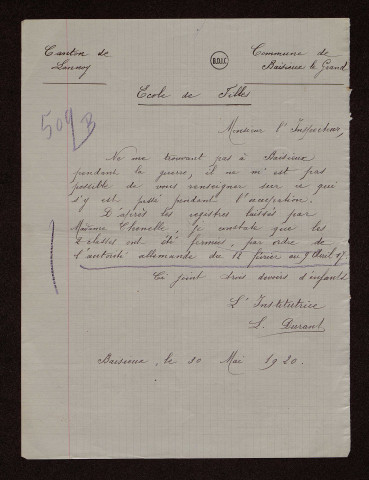 Canton de
Lannoy
B.D.I.C
Commune de
Baisieux le Grand
Ecole de Filles
509 B
Monsieur l'Inspecteur,
Ne me trouvant pas à Baisieux
pendant la guerre, il ne m'est pas
possible de vous renseigner sur ce qui
s'y est passé pendant l'occupation.
D'après les registres laissés par
Madame je constate que les
2 classes ont été fermées, par ordre de
l'autorité allemande du 12 février au 9 Avril 17.
Ci joint trois devoirs d'enfants
L'Institutrice
L. Durant
Baisieux, le 20 Mai 1920.